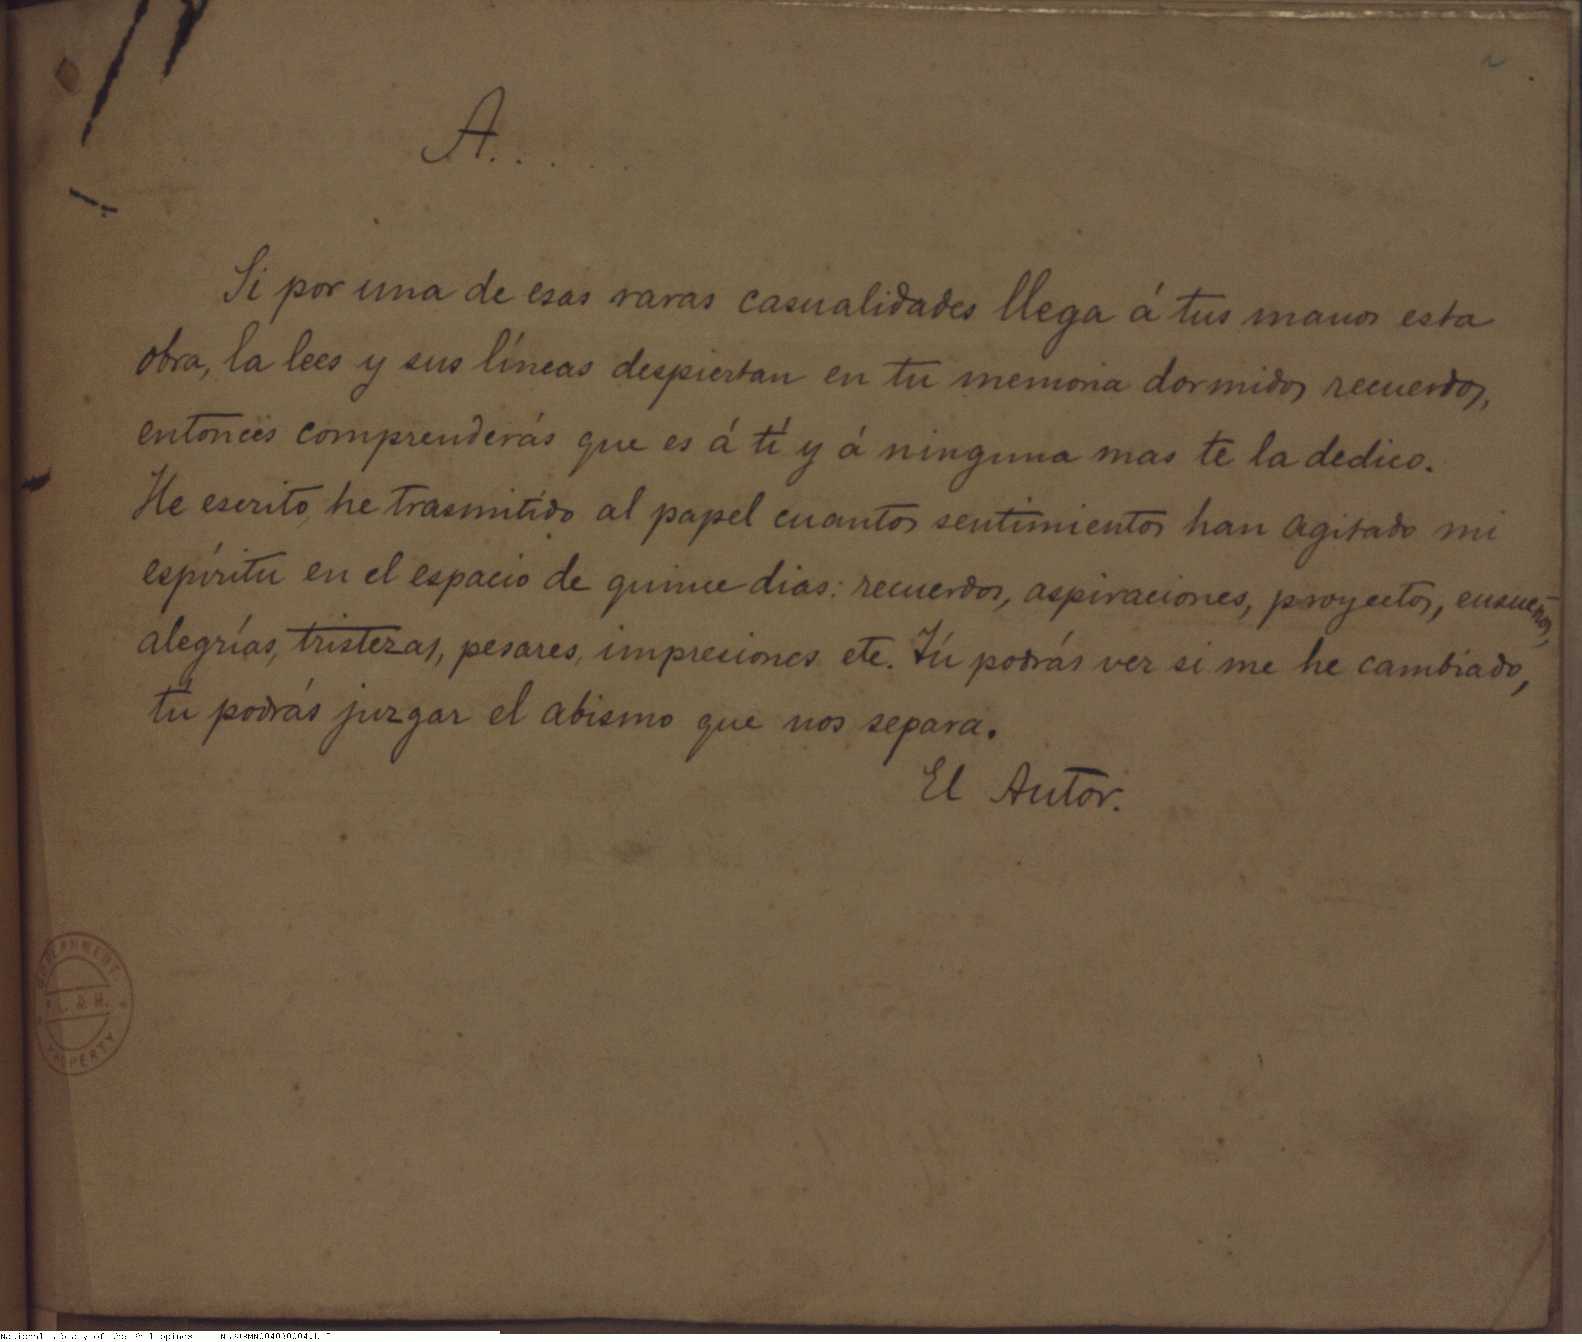 A. . . . .
Si por una de esas raras casualidades llega á tus manos esta
obra, la lees y sus líneas despiertan en tu memoria dormidos recuerdos,
entonces comprenderás que es á tí y á ninguna mas te la dedico.
He escrito, he trasmitido al papel cuantos sentimientos han agitado mi
espíritu en el espacio de quince dias: recuerdos, aspiraciones, proyectos, ensueños,
alegrías, tristezas, pesares, impresiones etc. Tú podrás ver si me he cambiado,
tú podrás juzgar el abismo que nos separa.
El Autor.
GOVERNMENT
PROPERTY
National Library of the Philippines